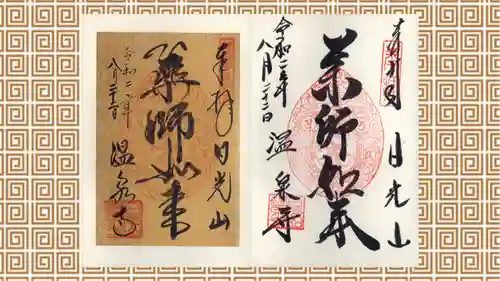 奉拝 日光山
薬師如来
令和二年
八月二十二日
温泉寺
奉拝 日光山
薬師如来
令和二年
八月二十二日
温泉寺